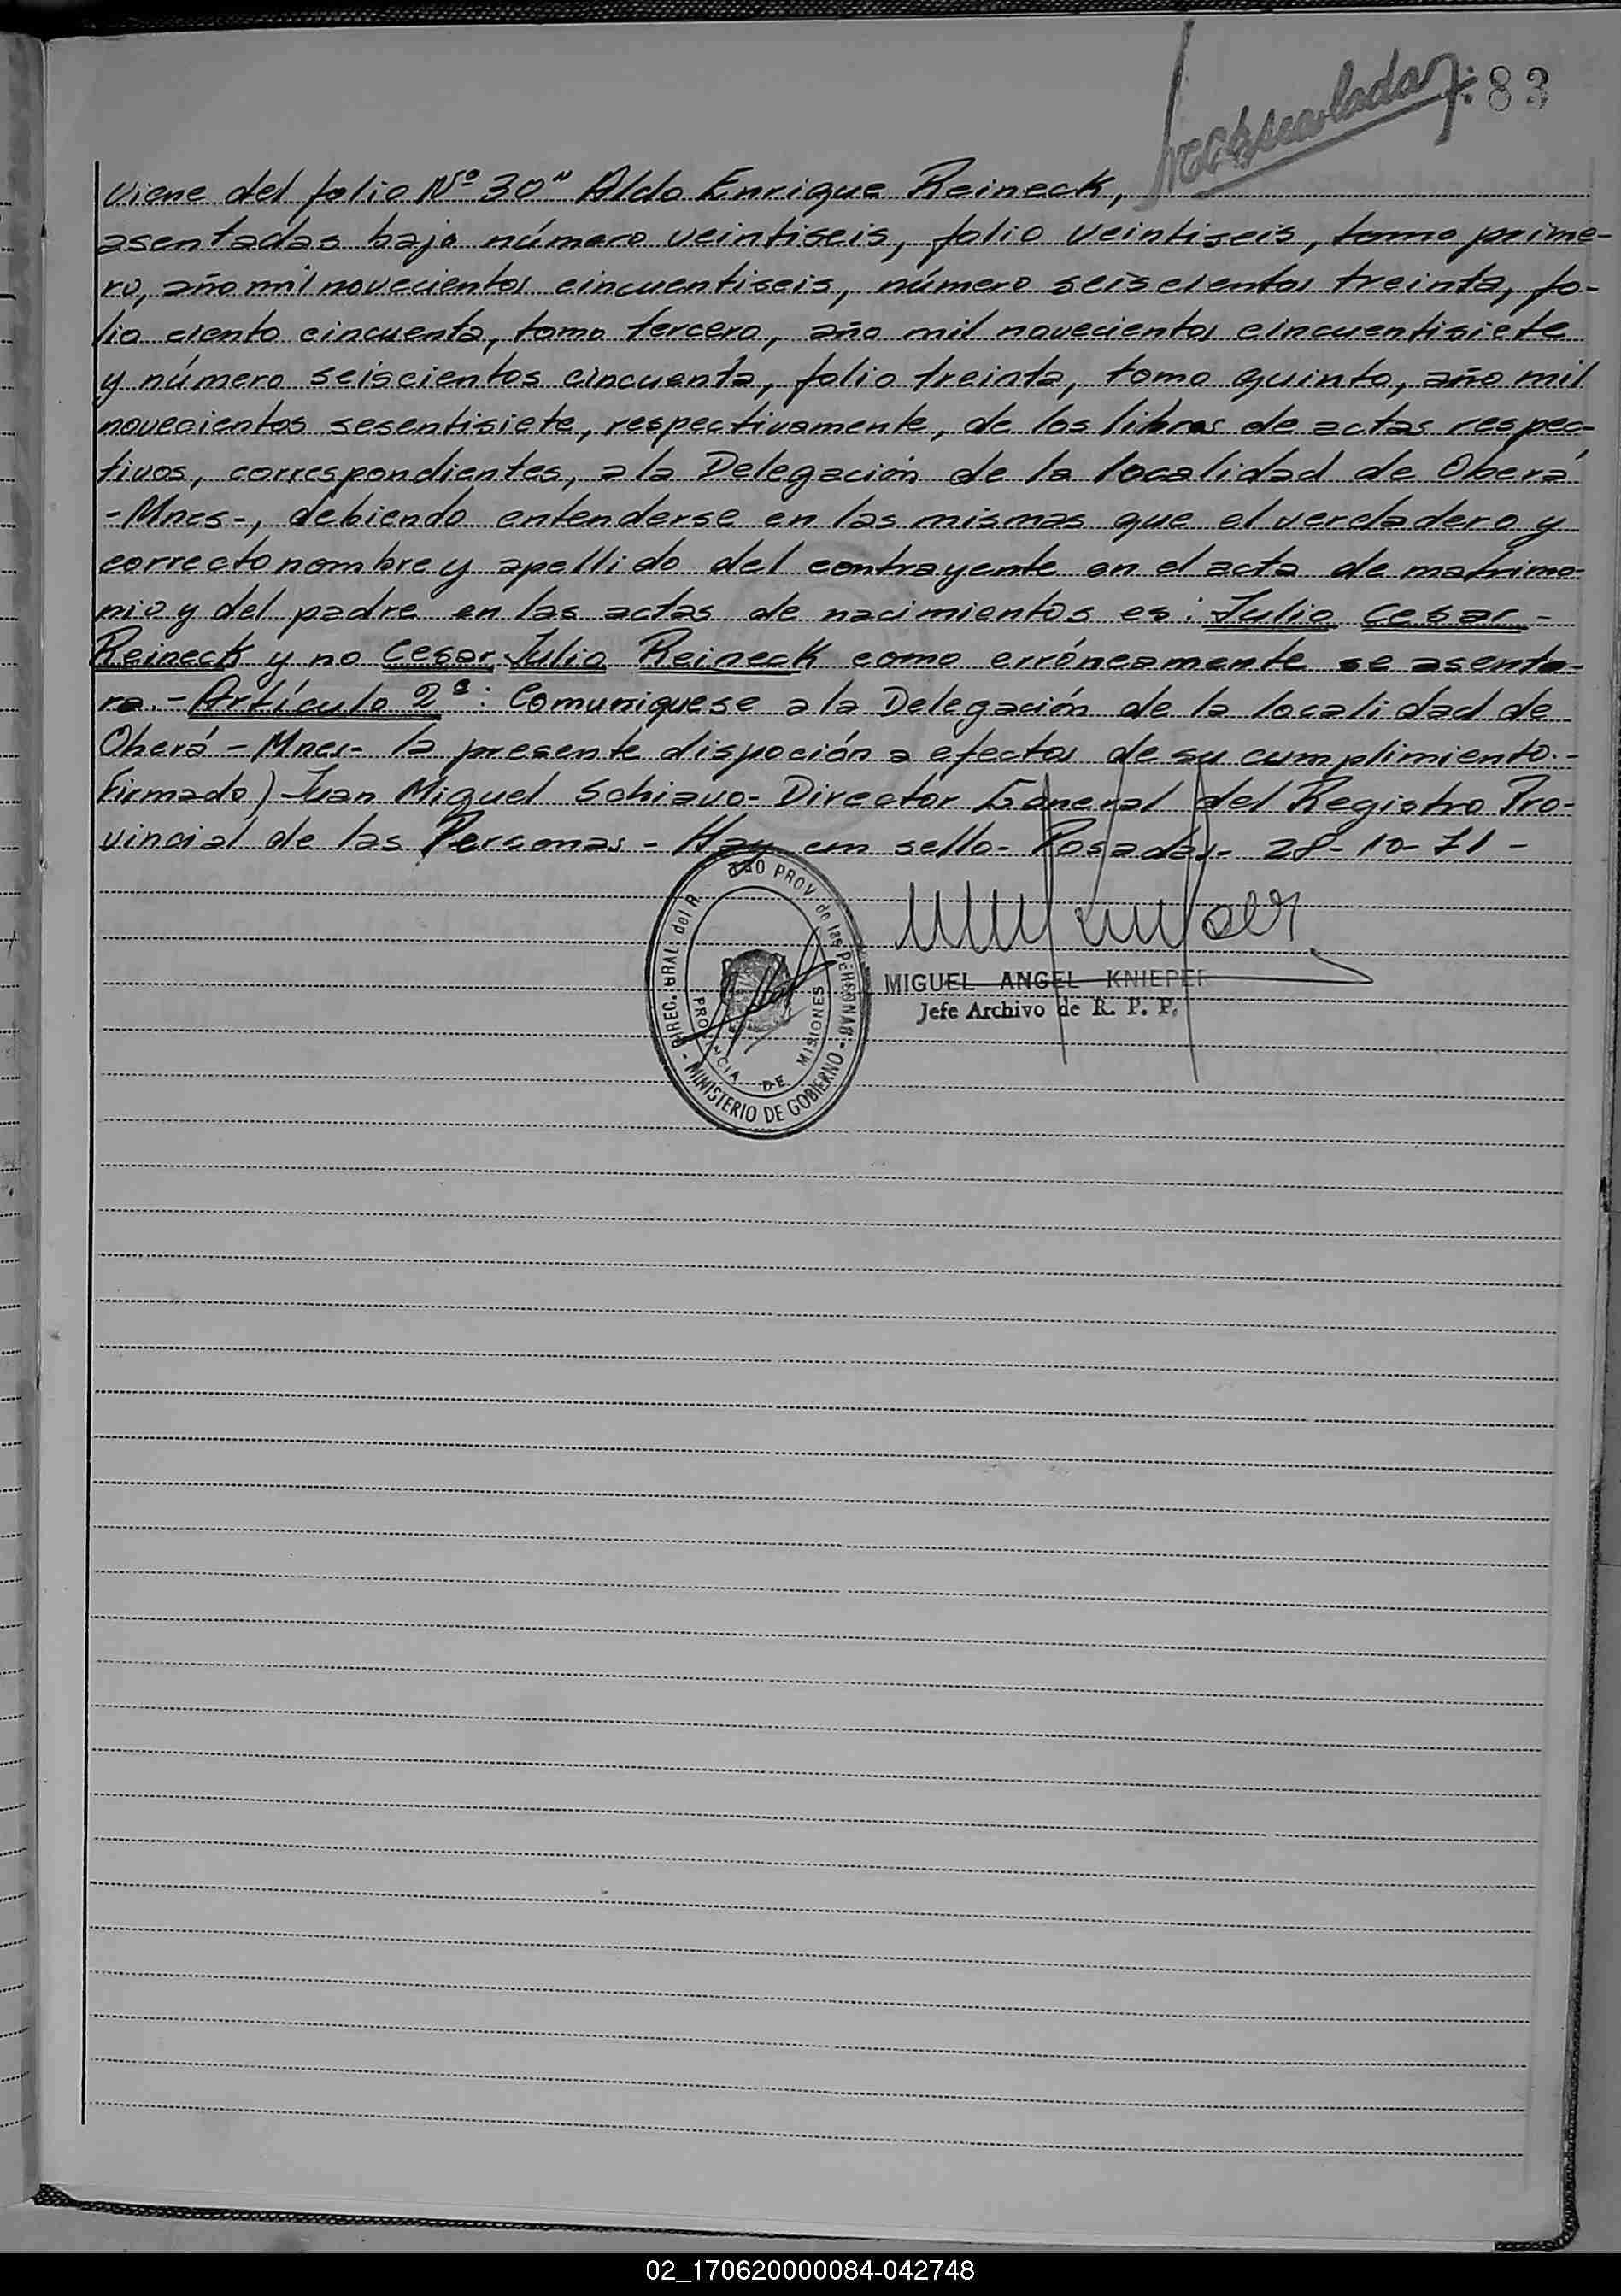 : 83
viene del folio Nº 30" Aldo Enrique Reineck,
asentadas bajo número veintiseis, folio veintiseis, tomo prime-
ro, año mil novecientos cincuentiseis, número seiscientos treinta, fo-
lio ciento cincuenta, tomo tercero, año mil novecientos cincuentisiete
y número seiscientos cincuenta, folio treinta, tomo quinto, año mil
novecientos sesentisiete, respectivamente, de los libros de actas respec-
tivos, correspondientes, a la Delegación de la localidad de Oberá
-Mnes-, debiendo entenderse en las mismas que el verdadero y
correcto nombre y apellido del contrayente en el acta de matrimo-
nio y del padre en las actas de nacimientos es: Julio Cesar -
Reineck y no Cesar Julio Reineck como erróneamente se asenta-
ra.- Artículo 2º: Comuniquese a la Delegación de la localidad de
Oberá - Mnes- la presente dispoción a efectos de su cumplimiento.-
Firmado) Juan Miguel Schiavo- Director General del Registro Pro-
vincial de las Personas - Hay un sello- Posadas- 28-10-71 -
DIREC. GRAL. del R PROV. de las PERSONAS
PROVINCIA DE MISIONES
- MINISTERIO DE GOBIERNO -
MIGUEL ANGEL KNIEPER
Jefe Archivo de R. P. P.
02_170620000084-042748